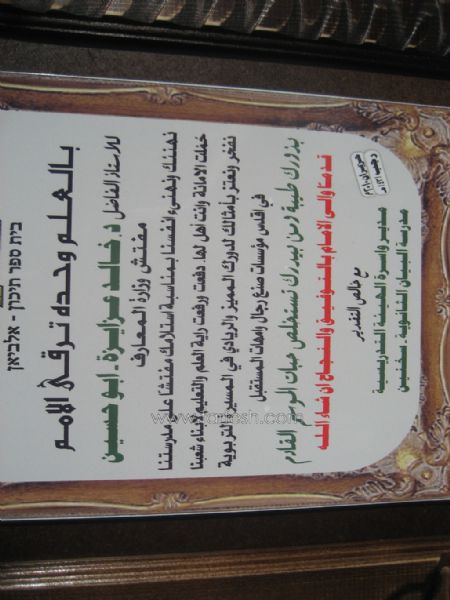 בית ספר תיכון - אלביאן
بالعلم وحده ترقى الامم
للاستاذ الفاضل د. خالد عزايزة - ابو حسين
مفتش وزارة المعارف
نهنئك ونهنيء انفسنا بمناسبة استلامك مفتشا على مدرستنا
حملت الامانة وانت أهل لها. دفعت ورفعت راية العلم والتعليم لأبناء شعبنا
نفتخر ونعتز بأمثالك لدورك المميز والريادي في المسيرة التربوية
في اقدس مؤسسات صنع رجال وامهات المستقبل
بذورك طيبة ومن بيدرك نستخلص حبات الموسم القادم
قدما والى الامام بالتوفيق والنجاح ان شاء الله
مع خالص التقدير
مدير واسرة الهيئة التدريسية
مدرسة البيان الثانوية - سخنين
حزيران ٢٠١٠م
رجب ١٤٣١هـ
www.panesh.com